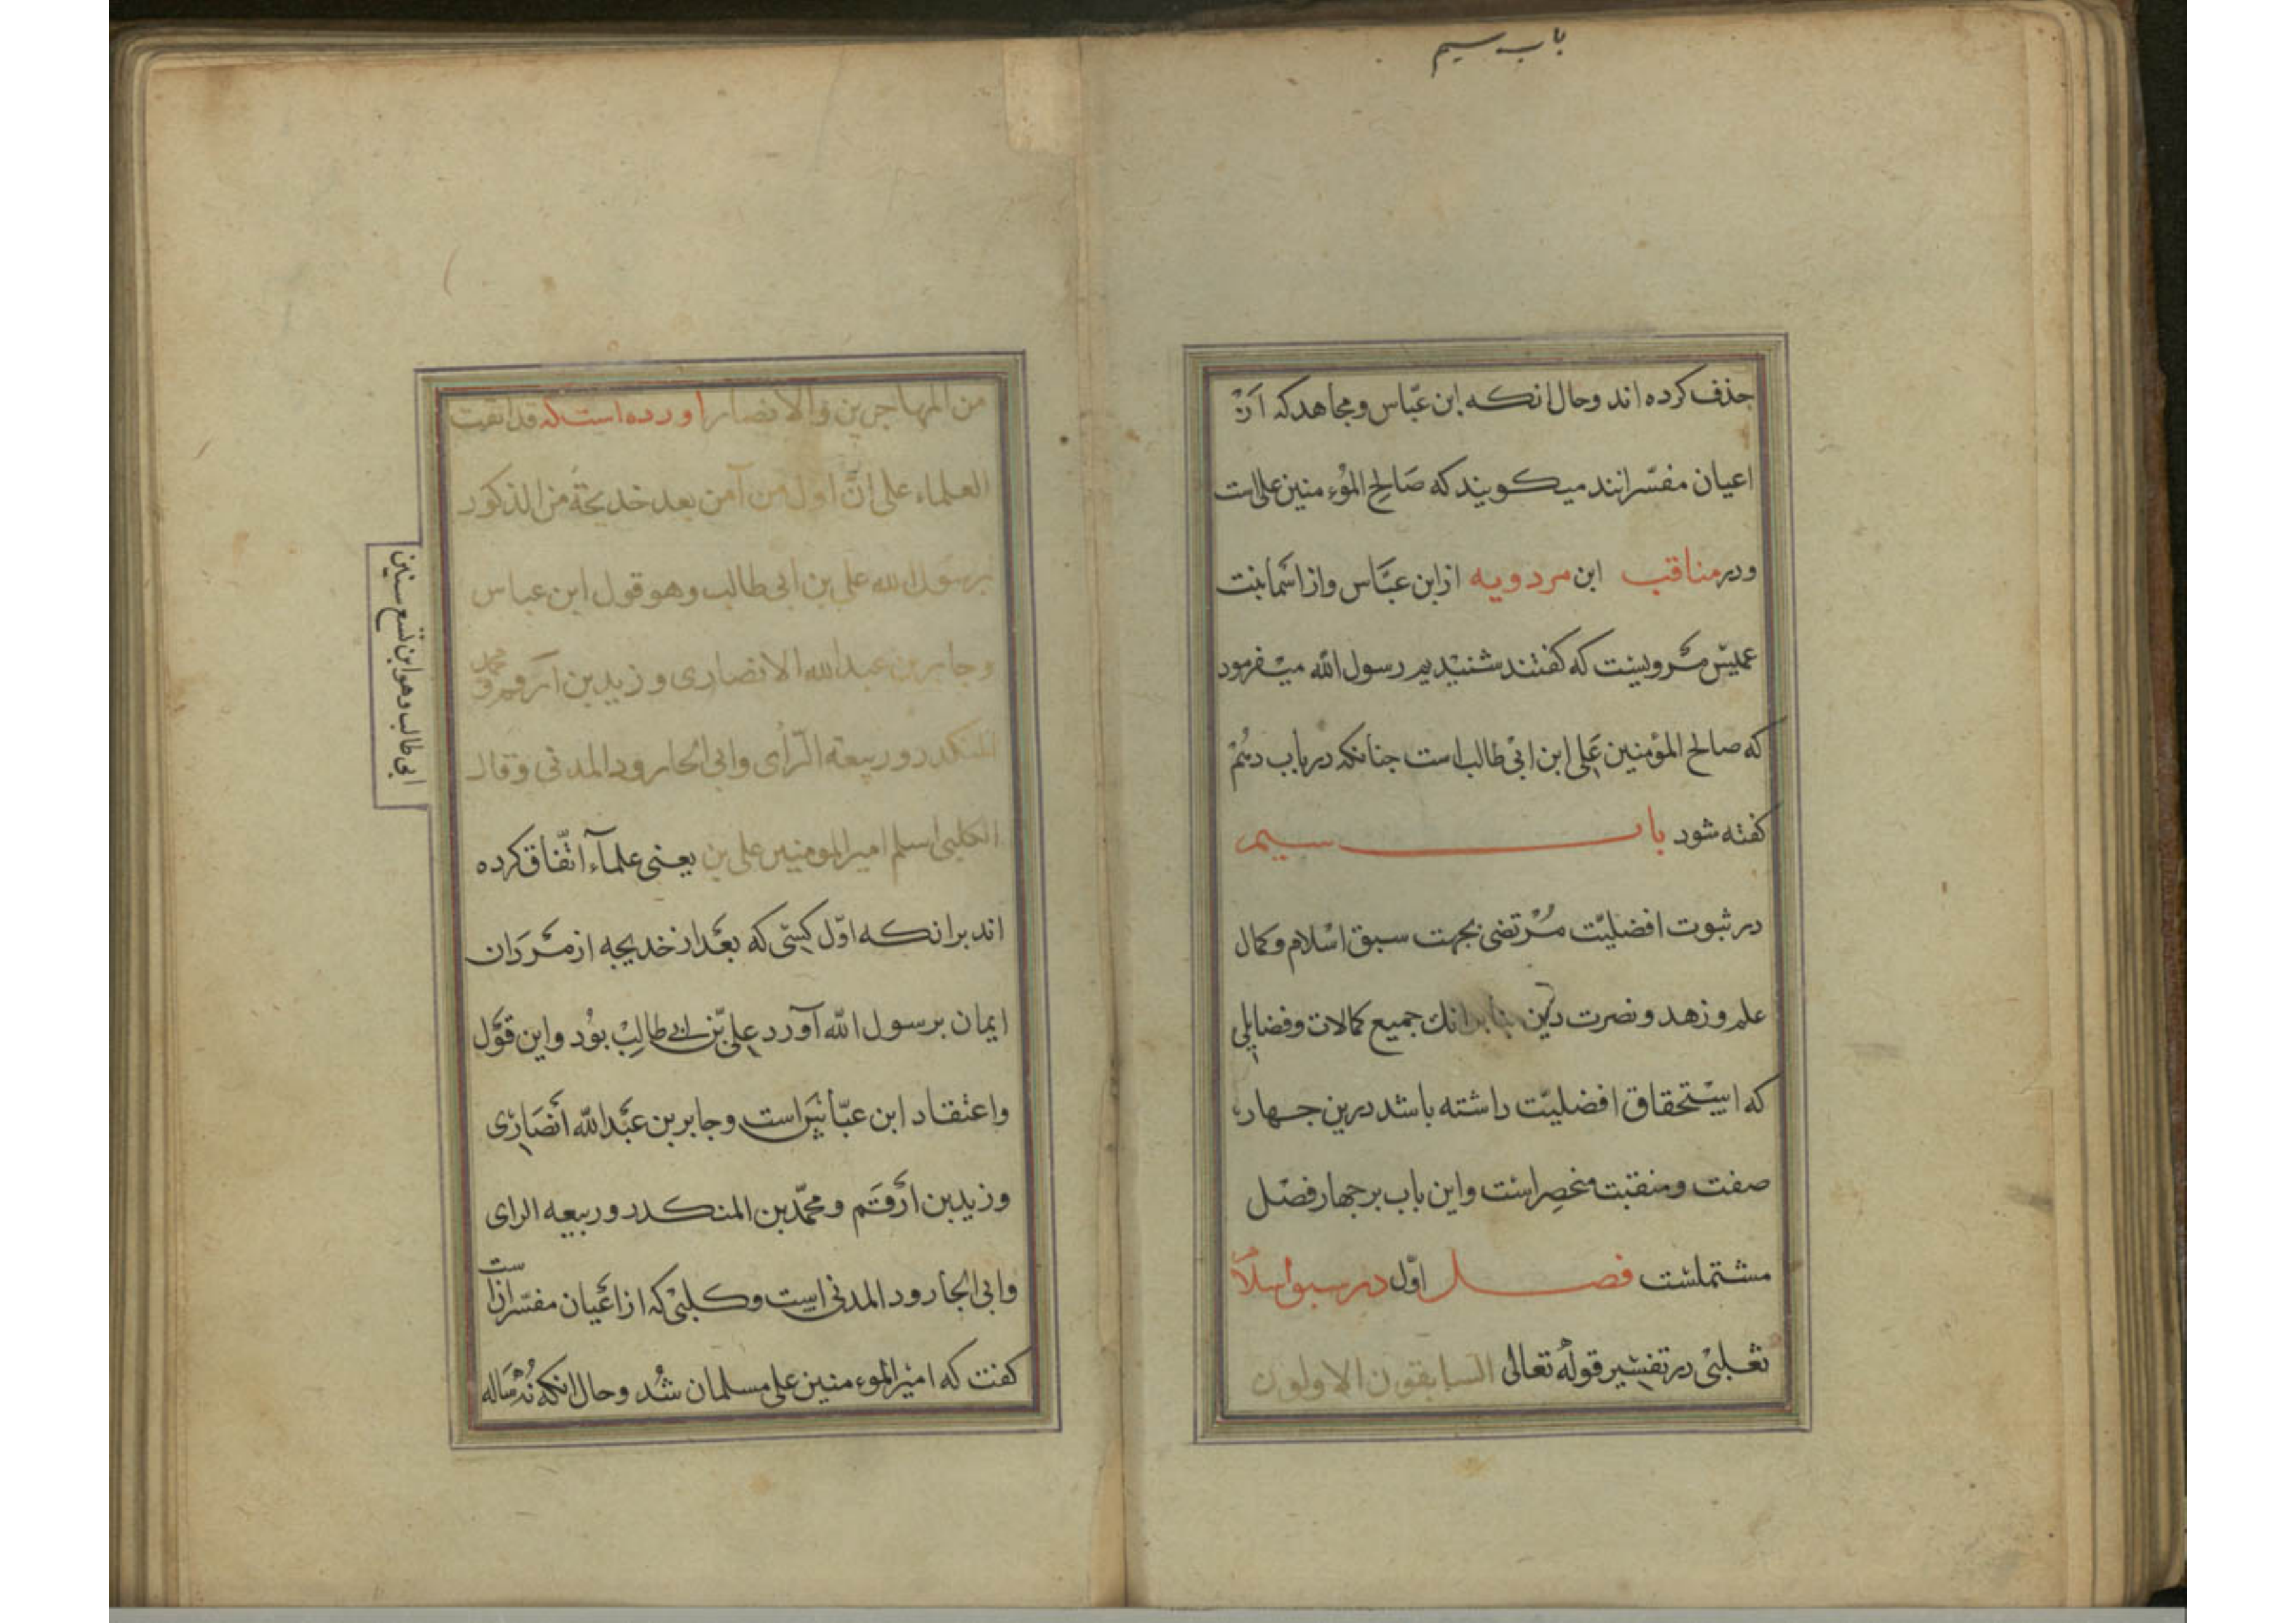 باب سیم
حذف کرده اند وحال انکه ابن عبّاس ومجاهد که از
اعیان مفسّرانند میکویند که صَالِح المؤمنین علی است
ودر مناقب ابن مردویه ازابن عبّاس واز اسْمَا بنت
عمیْس مَروِیست که کفتند شنیْدیم رسول الله میْفرمود
که صالح المؤمنین عَلی ابن ابیْ طالب است جنانکه در باب دهُمْ
کفته شود باب سیم
در ثبوت افضلیّت مُرْتضی بجهت سبق اسْلام وکمال
علم و زهد و نصرت دین بنابر انک جمیع کمالات وفضایلی
که اسْتحقاق افضلیّت داشته باشد درین جهار
صفت ومنقبت منحصِر است واین باب بر جهار فصْل
مشتملسْت فصل اوّل در سبق اسلام
ثعْلبیْ در تفسْیر قوله تعالی السابقون الاولون
من المهاجرین والانصار اورده است که قد اتفقت
العلماء علی انّ اول من آمن بعد خدیجة من الذکور
برسول الله علی بن ابی طالب وهو قول ابن عباس
وجابر بن عبدالله الانصاری و زید بن ارقم و محمد
المنکدر و ربیعة الرأی وابی الجارود المدنی وقال
الکلبی اسلم امیر المومنین علی بن یعنی علمآء اتّفاق کرده
ابی طالب وهو ابن تسع سنین
اند بر انکه اوّل کسی که بعْد از خدیجه از مرْدَان
ایمان برسول الله آورد علی بْن ابی طالِبْ بوْد واین قوْل
واعْتقاد ابن عبّاس است وجابر بن عبْدالله انْصَارْی
وزید بن ارْقَم ومحمّد بن المنکدر و ربیعه الرای
وابی الجارود المدنی است وکلبیْ که از اعْیان مفسّران است
کفت که امیْر المؤمنین علی مسلمان شُد وحال انکه نُه سَاله